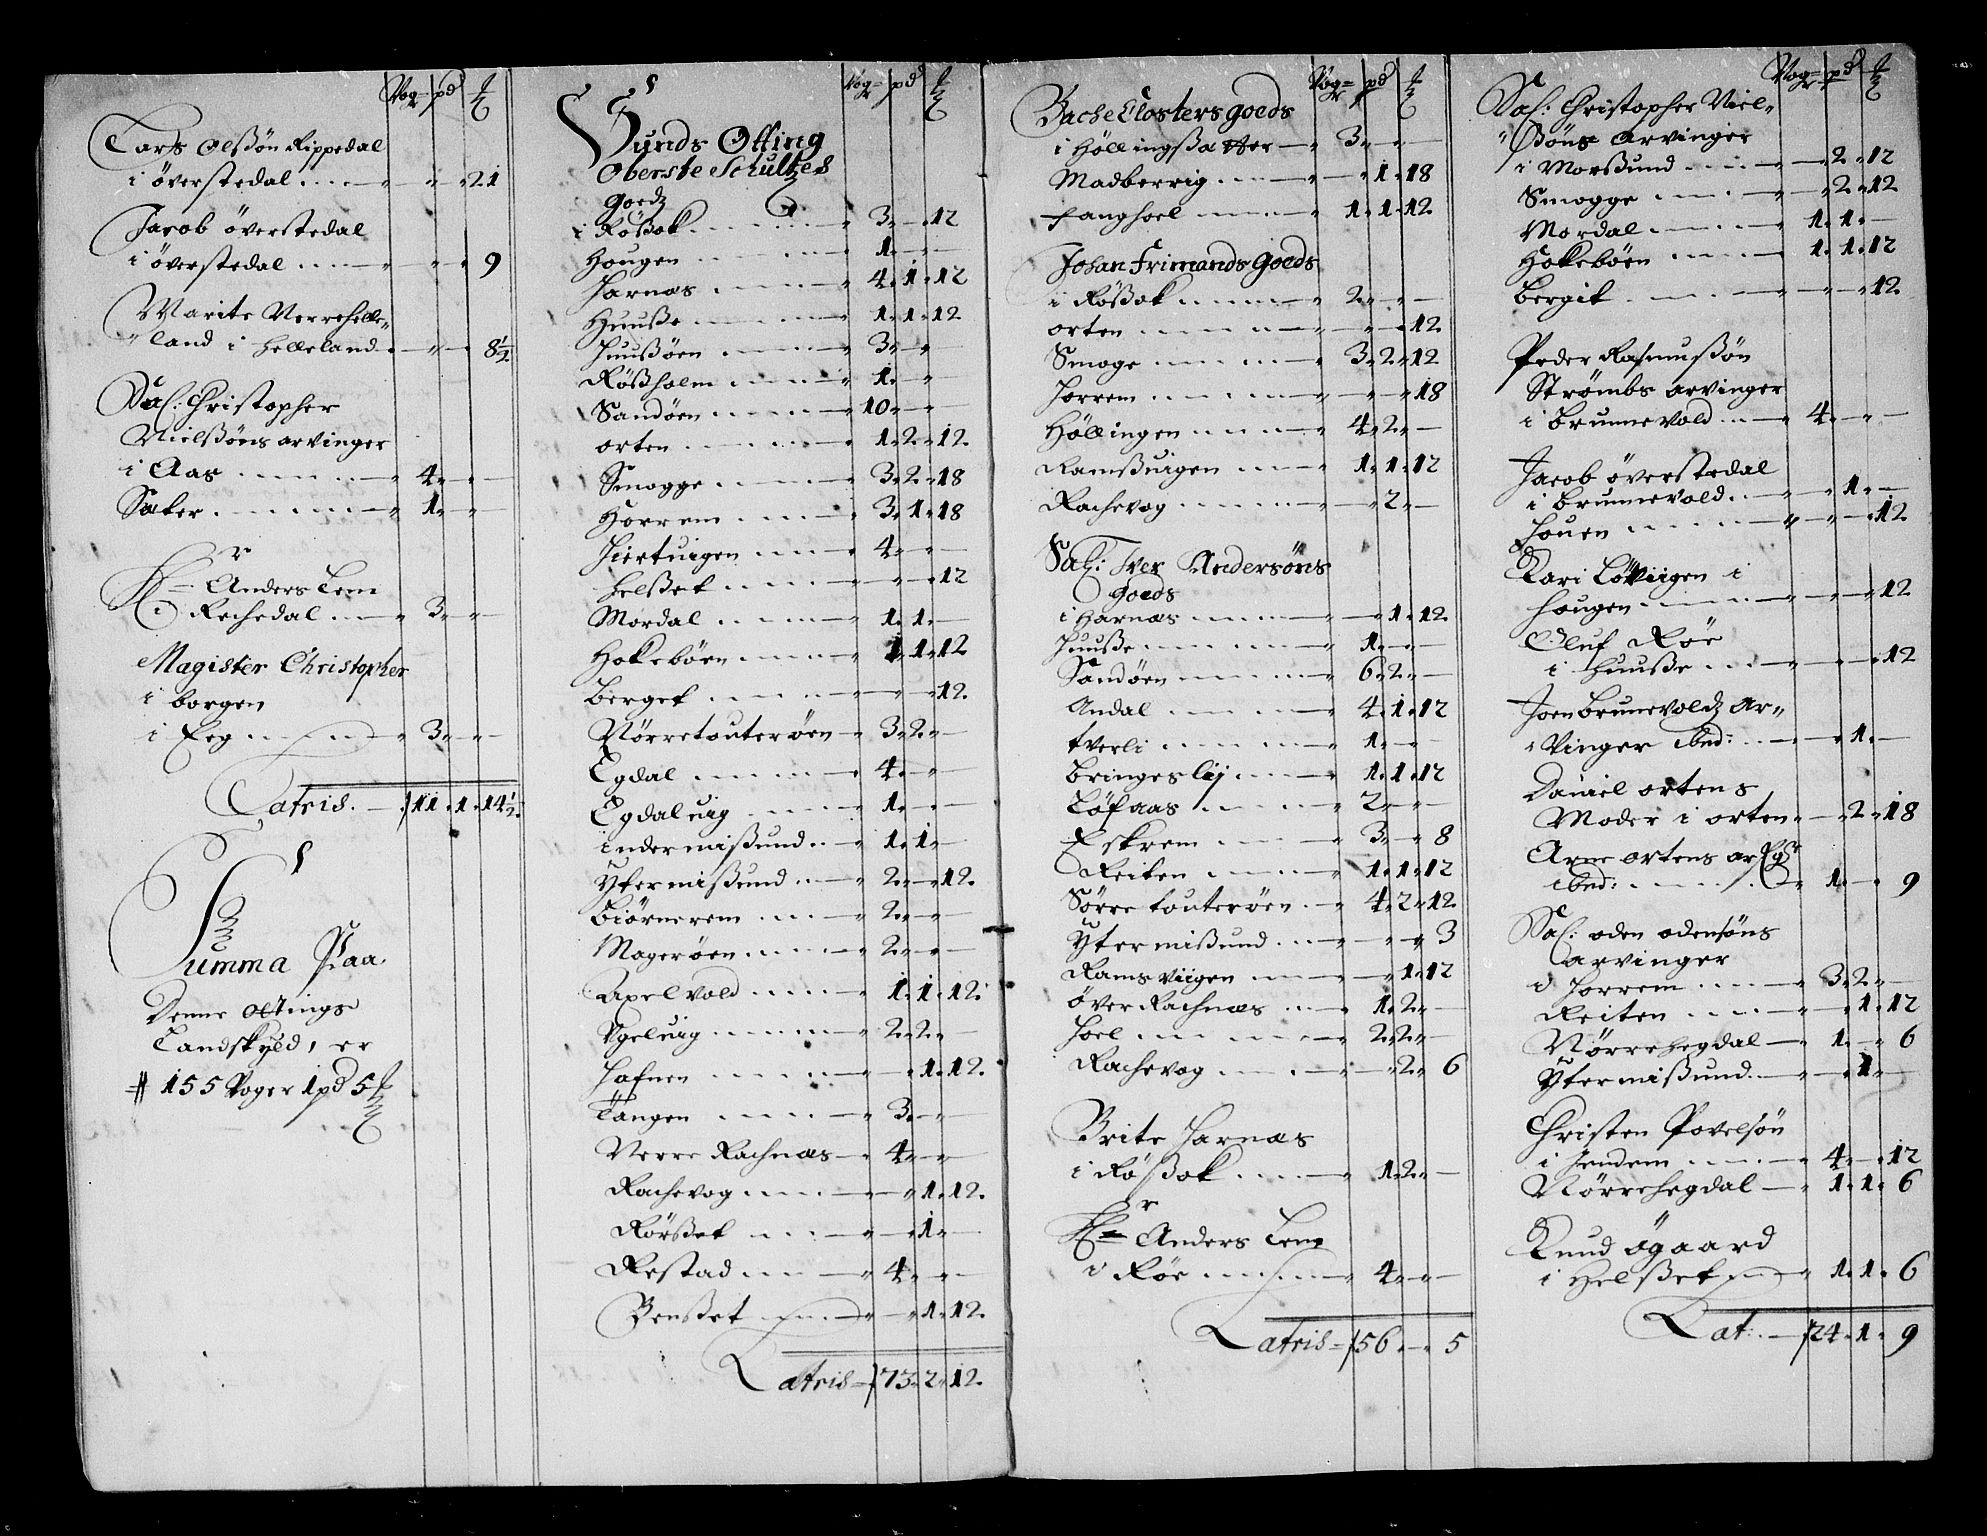 Vog= pd ℔
Lars Olßøn Rippedal
i överstedal . . . — " — " " 21
Jacob överstedal
i överstedal . . . — " " " 9
Marite Nerrehelle„
„land i Helleland — " — " 8½
Sal: Christopher
Nielßøns arvinger
i Aas . . . . — " 4 " — " —
Saker . . . . . — " 1 " — " —
Hr Anders Lem
i Rechedal . . — " 3 " — "
Magister Christopher
i borgen
i Eeg . . . — " 3 " — " —
Lateris . — / 11 " 1 " 14½
Summa Paa
Denne ottings
Landskyld, er
# 155 Voger 1 pd 5 ℔
Vog= pd ℔
Sunds Otting
Oberste Schultzes
Goedz
i Rößok . . . . — " 3 " — " 12
Hougen . . . . — " 1 " — " —
Harnæs . . . . — " 4 " 1 " 12
Huuße . . . . — " 1 " 1 " 12
Huußøen . . . . — " 3 " — "
Rößholm . . . . — " 1 " — "
Sandøen . . . . — " 10 " — " —
orten . . . . — " 1 " 2 " 12
Smogge . . . . — " 3 " 2 " 18
Horrem . . . . — " 3 " 1 " 18
Hiertuigen . . . — " 4 " — " —
Helßet . . . . — " — " — " 12
Mordal . . . . — " 1 " 1 " —
Hokebøen . . . — " 1 " 1 " 12
Berget . . . . — " — " — " 12
Nørretouterøen — " 3 " 2 " —
Egdal . . . . — " 4 " — "
Egdaluig . . . — " 1 " — " —
indermißund . . — " 1 " 1 " —
Ytermißund . . — " 2 " — " 12
Biørnerem . . . — " 2 " — "
Magerøen . . . — " 2 " — " —
Axelvold . . . — " 1 " 1 " 12
Ugeluig . . . . — " 2 " 2 " —
Hafnen . . . . — " — " 1 " 12
Tangen . . . . — " 3 " — "
Nerre Rachnæs — " 4 " — "
Rachevog . . . — " — " 1 " 12
Rørßet . . . — " — " 1 " —
Restad . . . — " 4 " — " —
Benßet . . . — " — " 1 " 12
Lateris — / 73 " 2 " 12
Vog= pd ℔
Bache Closters goeds
i Höllingßætter — " 3 " — " —
Madberrig . . . — " — " 1 " 18
Fanghoel . . . — " 1 " 1 " 12
Johan Frimands Goeds
i Rößok . . . . — " 2 " — " —
orten . . . . — " — " — " 12
Smoge . . . . — " 3 " 2 " 12
Horrem . . . . — " — " — " 18
Höllingen . . . — " 4 " 2 " —
Ramßuigen . . . — " 1 " 1 " 12
Rachevog . . . . — " — " 2 " —
Sal: Iver Andersøns
Goeds
i Harnæs . . . — " — " 1 " 12
Huuße . . . . — " 1 " — " —
Sandøen . . . . — " 6 " 2 " —
Andal . . . . — " 4 " 1 " 12
tverli . . . . — " 1 " — " —
Bringeslij . . . — " 1 " 1 " 12
Løfaas . . . . — " 2 " — " —
Eskrem . . . . — " 3 " — " 8
Reiten . . . . — " 1 " 1 " 12
Sørre touterøen . — " 4 " 2 " 12
Ytermißund . . . — " — " — " 3
Ramsviigen . . — " — " 1 " 12
över Rachnæs . . — " 1 " 2 " —
Hoel . . . . — " 2 " 2 " —
Rachevog . . . . — " — " 2 " 6
Brite Harnæs
i Rößok . . . . — " 1 " 2 " —
Hr Anders Lem
i Röe . . . . . — " 4 " — " —
Lateris — / 56 " — " 5
Vog= pd ℔
Sal: Christopher Niel„
„ßøns Arvinger
i Morßund . . . — " — " 2 " 12
Smogge . . . . — " — " 2 " 12
Mordal . . . . — " 1 " 1 " —
Hokebøen . . . — " 1 " 1 " 12
Bergit . . . . — " — " — " 12
Peder Rasmußøn
Strømbs arvinger
i Brunnevold . . — " 4 " — " —
Jacob överstedal
i Brunnevold . . — " — " 1 " —
Houen . . . . — " — " — " 12
Kari Løviigen i
Hougen . . . . — " — " — " 12
Oluf Røe
i Huuße . . . — " — " — " 12
Joen brunevoldz Ar„
„vinger ibed: . . — " — " 1 " —
Daniel ortens
Moder i orten — " — " 2 " 18
Arne ortens
ibed: . . . . — " 1 " — " 9
Sal: oden odensøns
arvinger
i Horrem . . . — " 3 " 2 " —
Reiten . . . . — " — " 1 " 12
Nørrehegdal — " 1 " — " 6
Ytermißund . . — " — " 1 " —
Christen Povelsøn
i Hendem . . . — " 4 " — " 12
Nørrehegdal — " 1 " 1 " 6
Knud ögaard
i Helßet . . — " 1 " 1 " 6
Lat: . — / 24 " 1 " 9